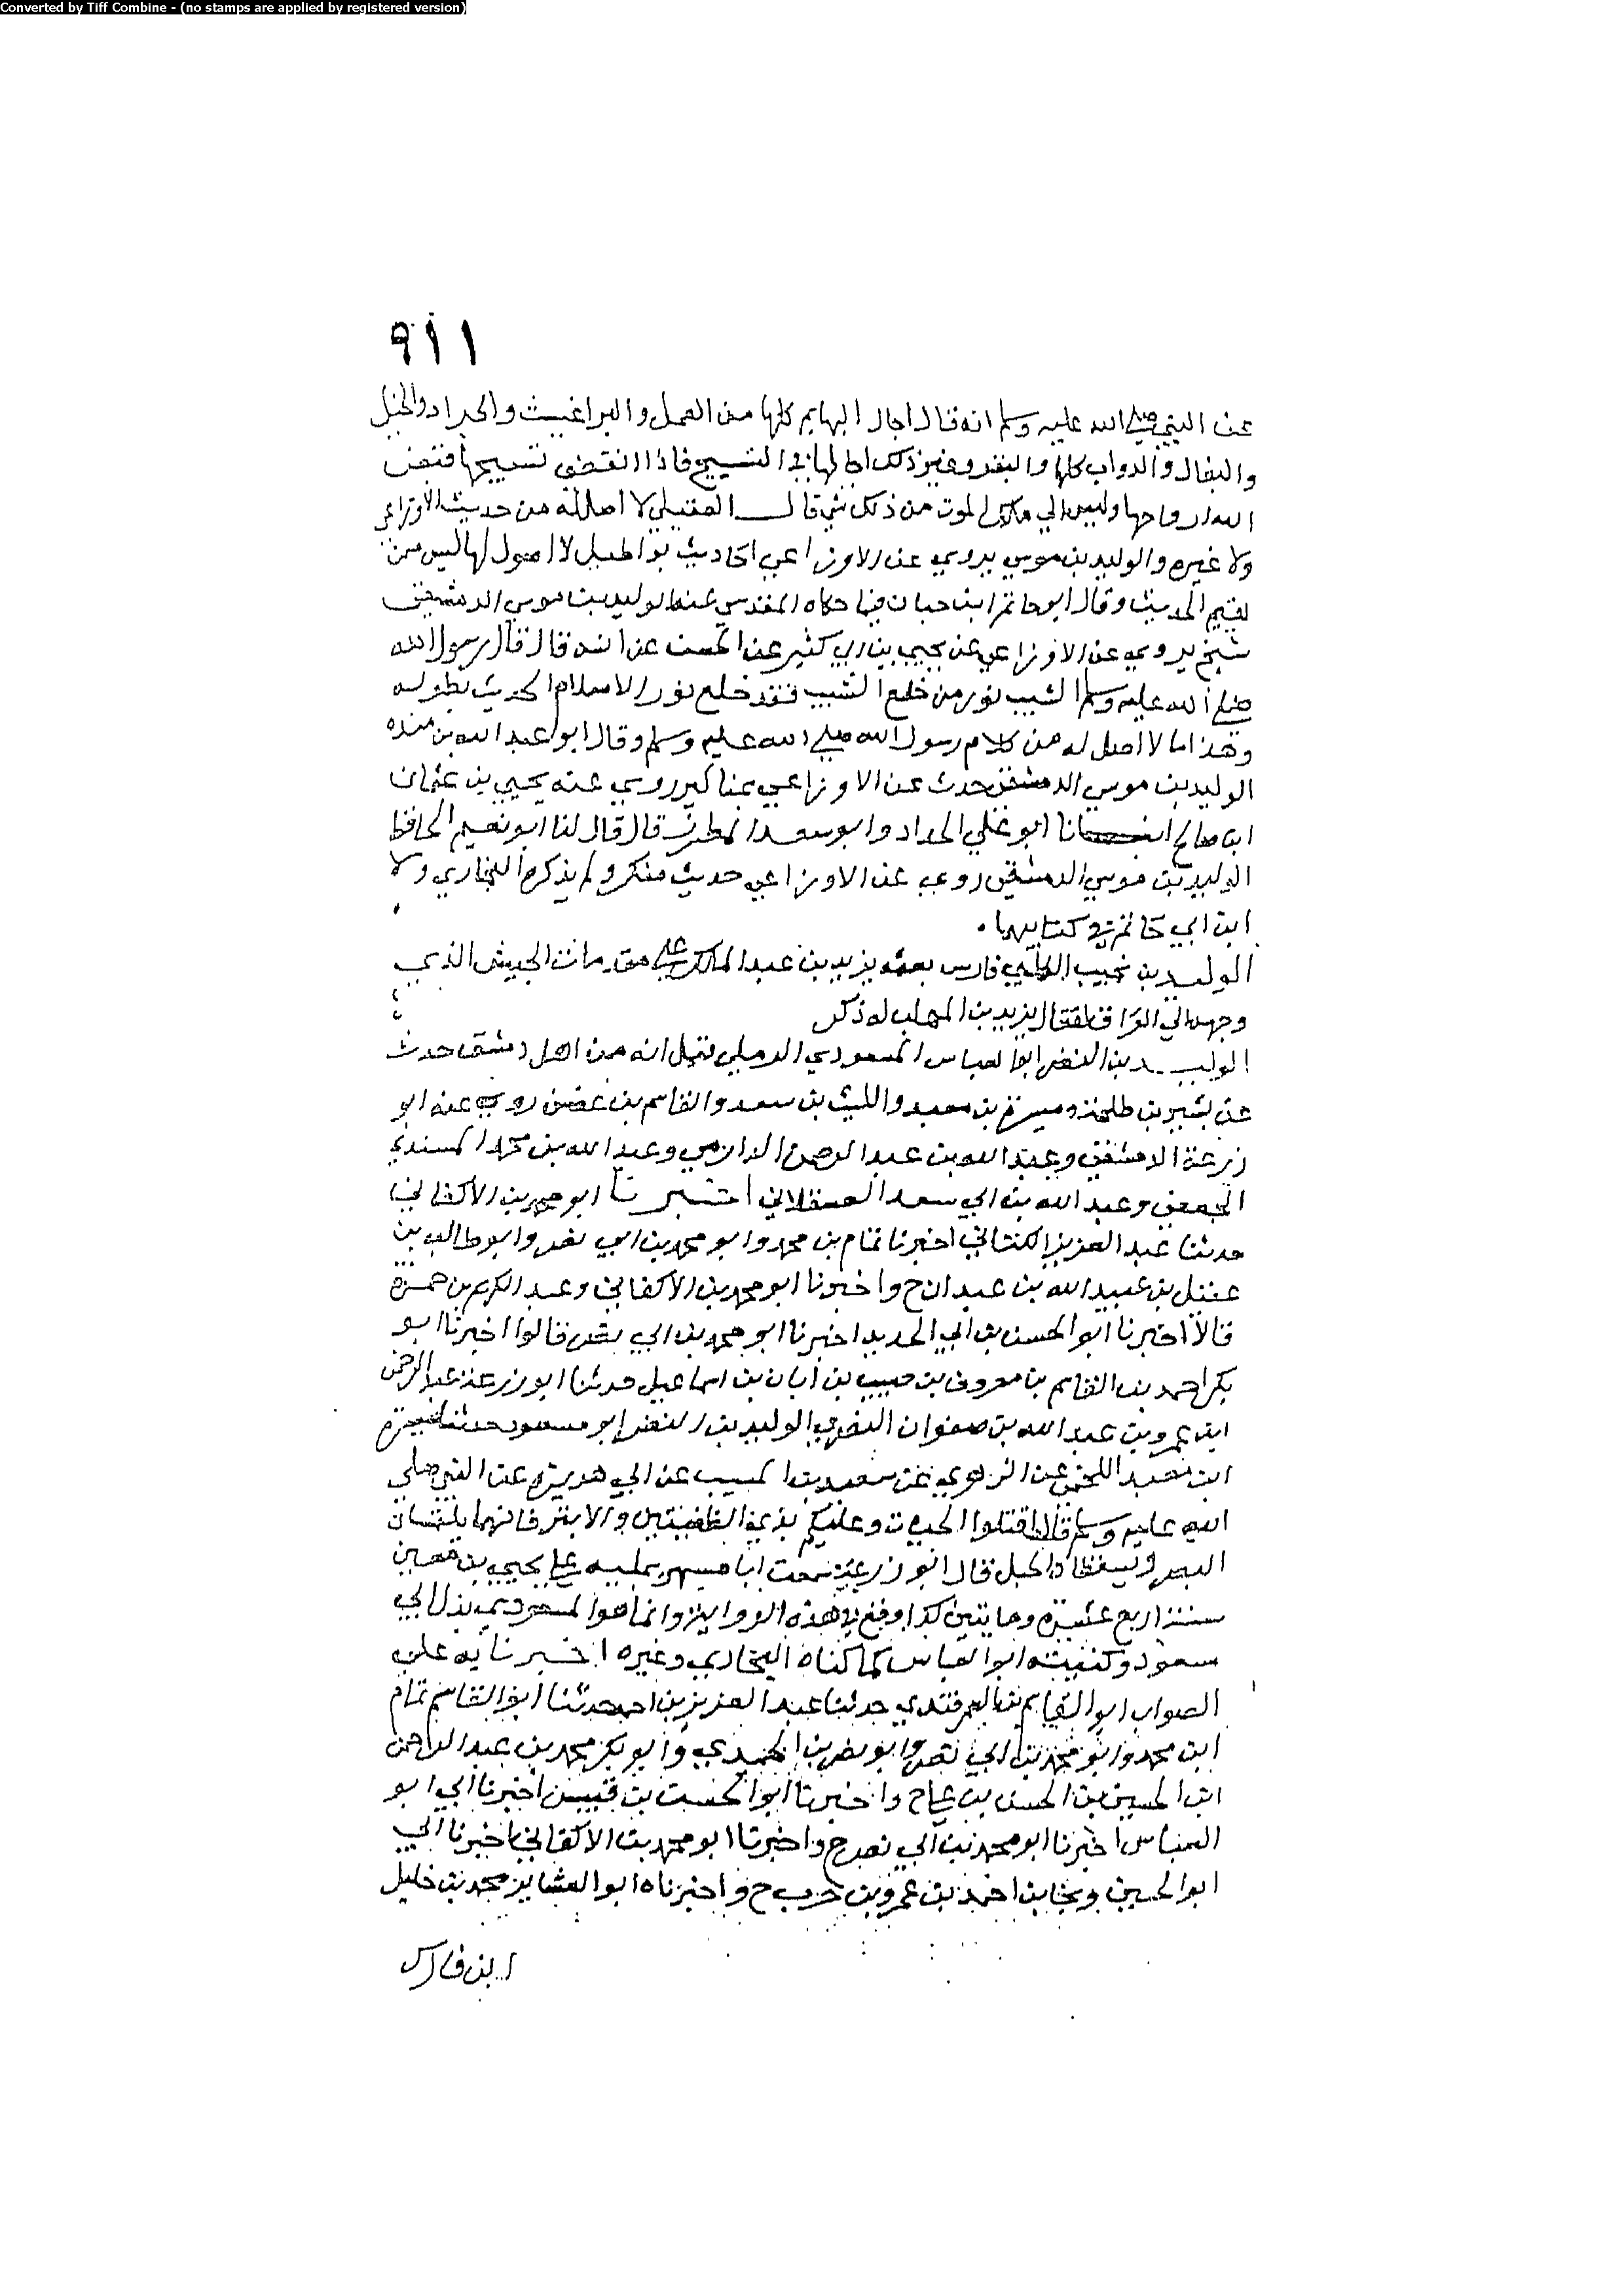 Converted by Tiff Combine - (no stamps are applied by registered version)
٩١١
عن النبي صلى الله عليه وسلم انه قال اجال البهايم كلها من القمل والبراغيث والجراد والخيل
والبغال والدواب كلها والبقر وغير ذلك اجالها في التسبيح فاذا انقضى تسبيحها قبض
الله ارواحها وليس الي ملك الموت من ذلك شي قال العقيلي لا اصل له من حديث الاوزاعي
ولا غيره والوليد بن موسي يروي عن الاوزاعي احاديث بواطيل لا اصول لها ليس ممن
يقيم الحديث وقال ابو حاتم ابن حبان فيما حكاه المقدسي عنه الوليد بن موسي الدمشقي
شيخ يروي عن الاوزاعي عن يحيي بن ابي كثير عن الحسن عن انس قال قال رسول الله
صلى الله عليه وسلم الشيب نور من خلع الشيب فقد خلع نور الاسلام الحديث بطوله
وهذا ما لا اصل له من كلام رسول الله صلي الله عليه وسلم وقال ابو عبد الله بن منده
الوليد بن موسي الدمشقي حدث عن الاوزاعي بمناكير روي عنه يحيي بن عثمان
ابن صالح انبانا ابو علي الحداد وابو سعد المطرز قال قال لنا ابو نعيم الحافظ
الوليد بن موسي الدمشقي روي عن الاوزاعي حديث منكر ولم يذكره البخاري ولا
ابن ابي حاتم في كتابيهما .
الوليد بن نجيب الكلبي فارس بعثه يزيد بن عبد الملك علي مقدمات الجيش الذي
وجهه الي العراق لقتال يزيد بن المهلب له ذكر
الوليد بن النضر ابو العباس المسعودي الرملي قيل انه من اهل دمشق حدث
عن بشير بن طلحة وميسرة بن معبد والليث بن سعد والقاسم بن غصن روي عنه ابو
زرعة الدمشقي وعبد الله بن عبد الرحمن الدارمي وعبد الله بن محمد المسندي
الجعفي وعبد الله بن ابي سعد العسقلاني اخبرنا ابو محمد بن الاكفاني
حدثنا عبد العزيز الكتاني اخبرنا تمام بن محمد وابو محمد بن ابي نصر وابو طالب بن
عقيل بن عبيد الله بن عبدان ح واخبرنا ابو محمد بن الاكفاني وعبد الكريم بن حمزة
قالا اخبرنا ابو الحسن بن ابي الحديد اخبرنا ابو محمد بن ابي نصر قالوا اخبرنا ابو
بكر احمد بن القاسم بن معروف بن حبيب بن ابان بن اسماعيل حدثنا ابو زرعة عبد الرحمن
ابن عمرو بن عبد الله بن صفوان النصري الوليد بن النضر ابو مسعود حدثنا ميسرة
ابن معبد اللخمي عن الزهري عن سعيد بن المسيب عن ابي هريرة عن النبي صلي
الله عليه وسلم قال اقتلوا الحيات وعليكم بذي الطفيتين والابتر فانهما يلتمسان
البصر ويسقطان الحبل قال ابو زرعة سمعت ابا مسهر يمليه علي يحيي بن معين
سنة اربع عشرة ومايتين كذا وقع في هذه الرواية وانما هو المسعودي بدل ابي
مسعود وكنيته ابو العباس كما كناه البخاري وغيره اخبرنا به علي
الصواب ابو القاسم بن السمرقندي حدثنا عبد العزيز بن احمد حدثنا ابو القاسم تمام
ابن محمد وابو محمد بن ابي نصر وابو نصر بن الجندي وابو بكر محمد بن عبد الرحمن
ابن الحسين بن الحسن بن علي ح واخبرنا ابو الحسن بن قبيس اخبرنا ابي ابو
العباس اخبرنا ابو محمد بن ابي نصر ح واخبرنا ابو محمد بن الاكفاني اخبرنا ابي
ابو الحسين احمد بن عمرو بن حرب ح واخبرناه ابو العشاير محمد بن خليل
ابن فارس